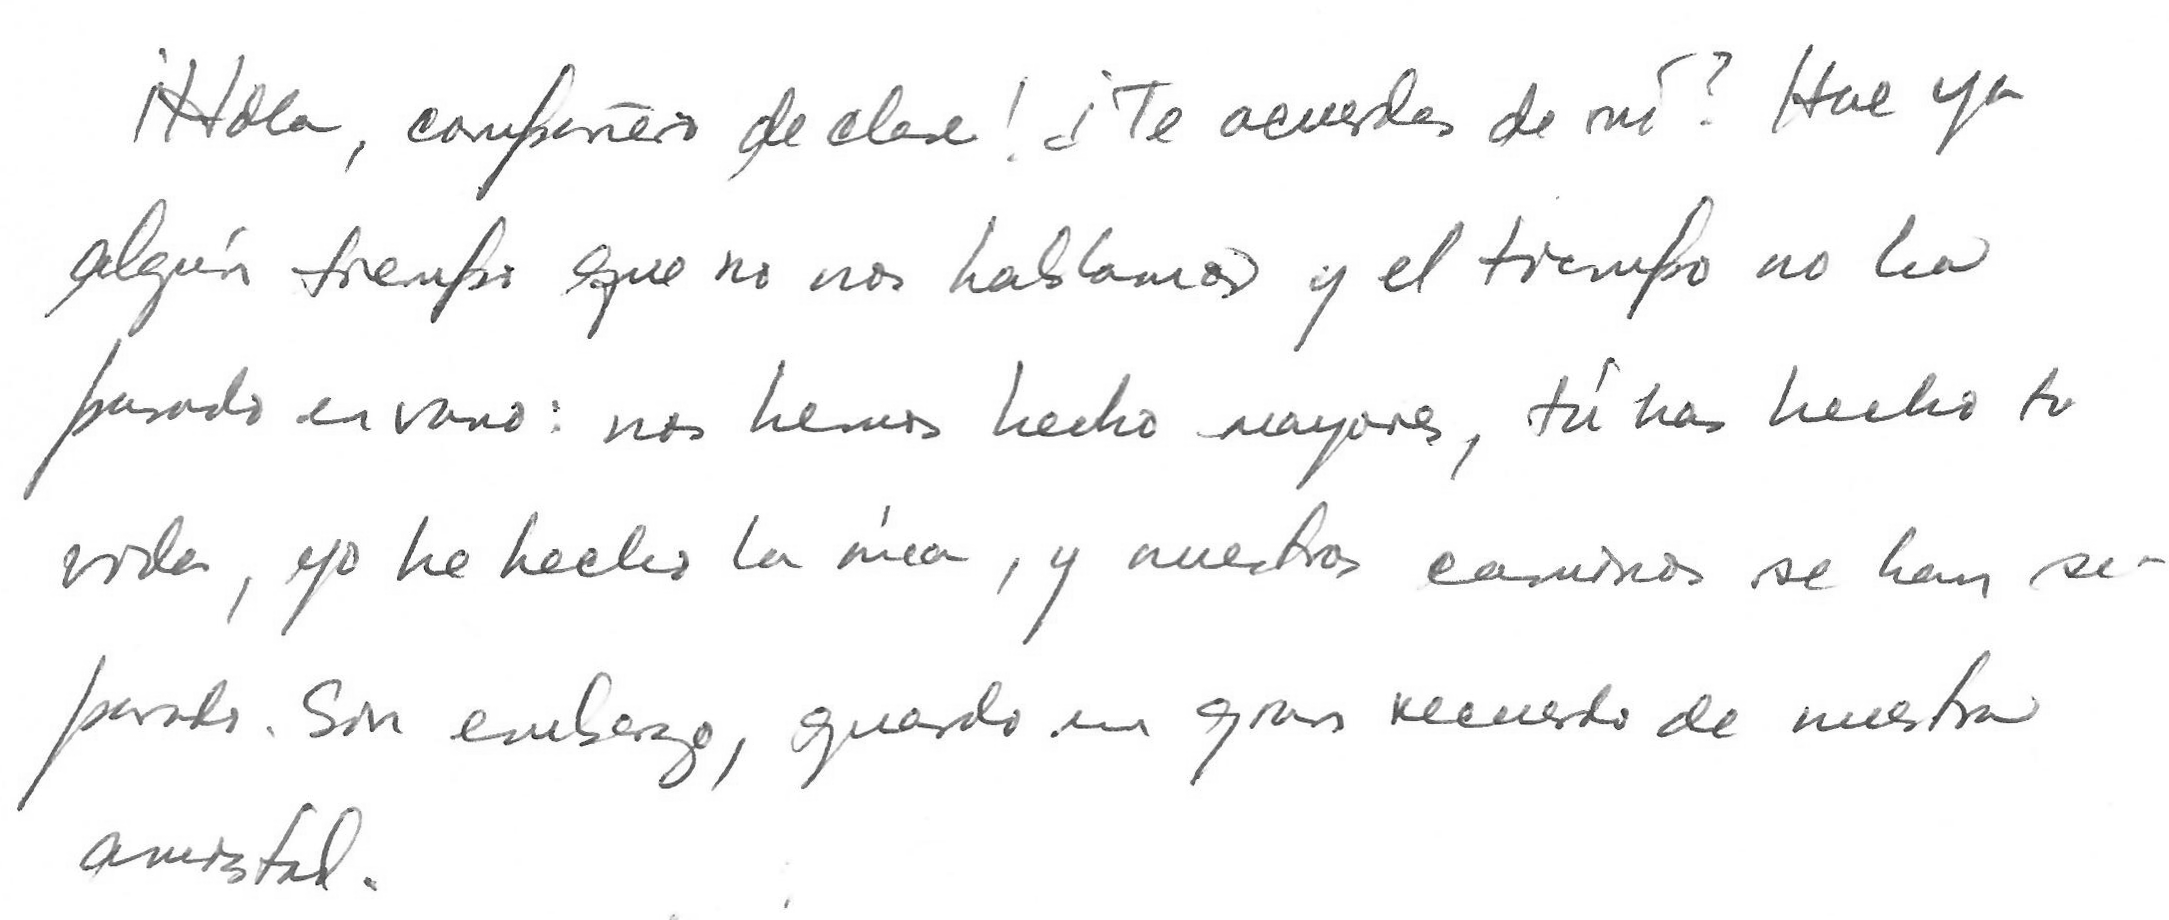 ¡Hola, compañero de clase! ¿Te acuerdas de mí? Hace ya
algún tiempo que no nos hablamos y el tiempo no ha
pasado en vano: nos hemos hecho mayores, tú has hecho tu
vida, yo he hecho la mía, y nuestros caminos se han se-
parado. Sin embargo, guardo un gran recuerdo de nuestra
amistad.